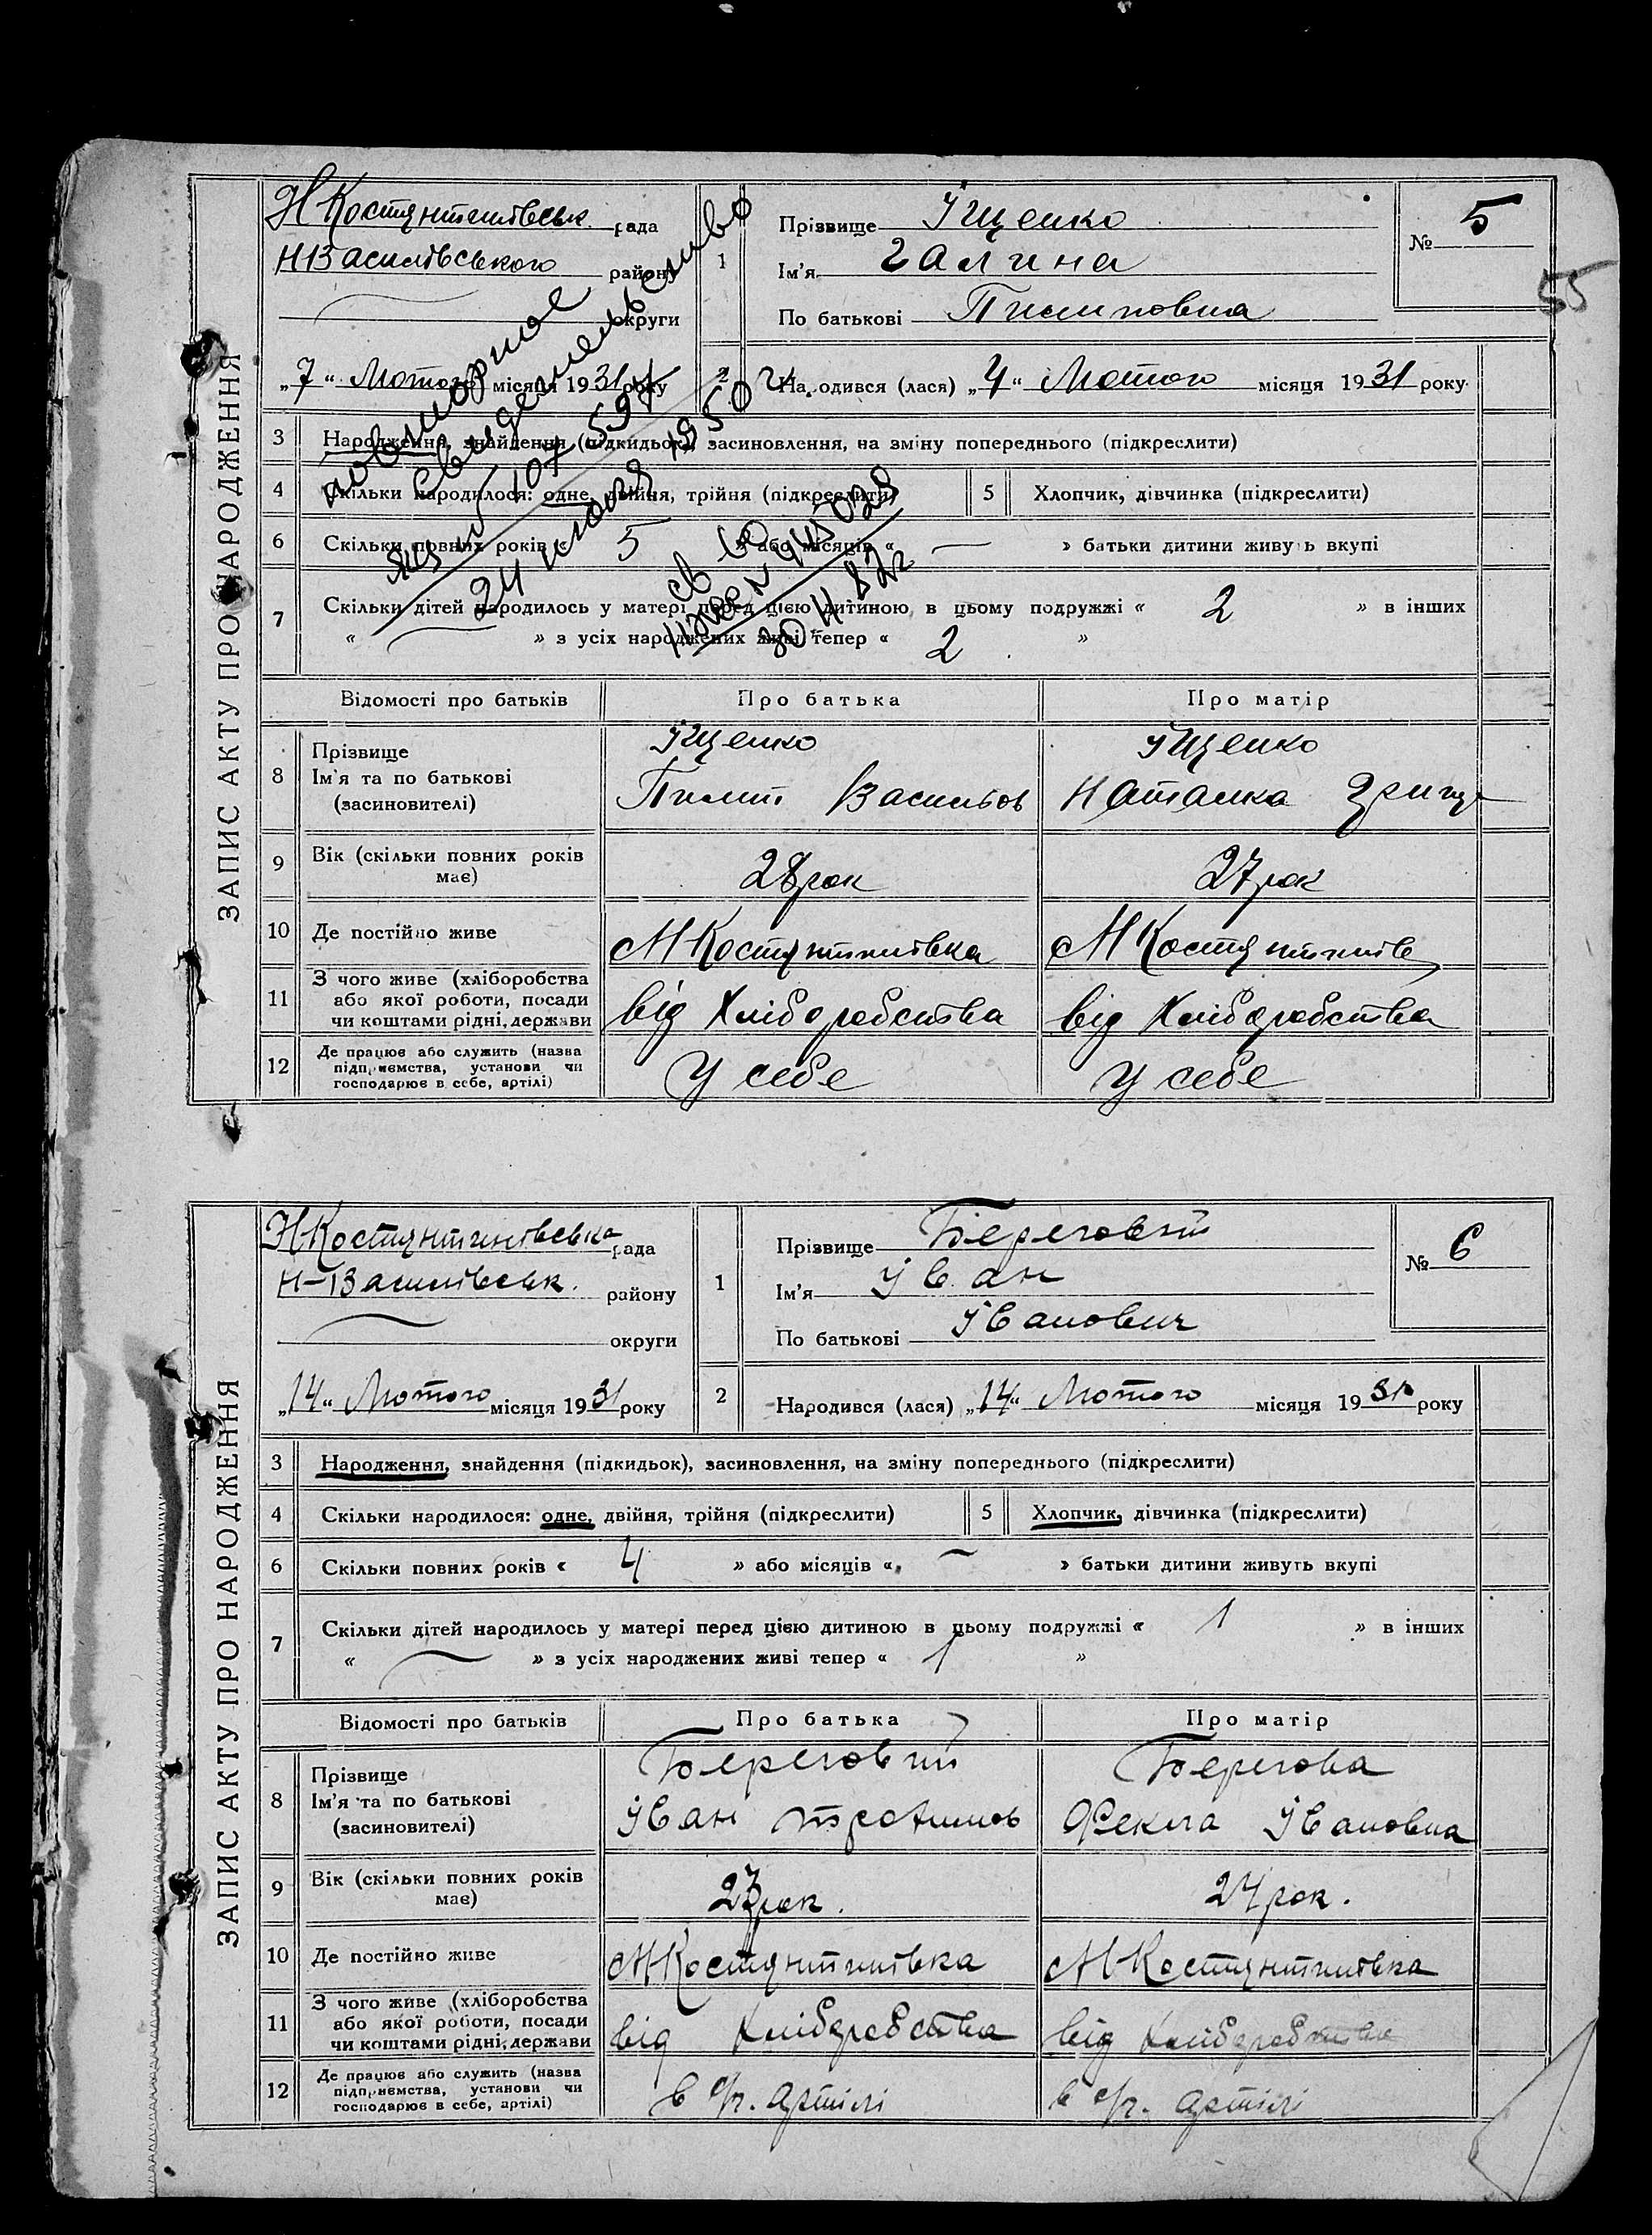 ЗАПИС АКТУ ПРО НАРОДЖЕННЯ
Н Костянтинівськ. рада
Н Василівського району
округи
„7“ Лютого місяця 1931 року
1
Прізвище Іщенко
Ім'я Галина
По батькові Пилиповна
№ 5
55
2 Народився (лася) „4“ Лютого місяця 1931 року
повторное
свидетельство
107597
24 июля 1950 г
3 Народження, знайдення (підкидьок), засиновлення, на зміну попереднього (підкреслити)
4 Скільки народилося: одне, двійня, трійня (підкреслити)
5 Хлопчик, дівчинка (підкреслити)
6 Скільки повних років « 5 » або місяців « — » батьки дитини живуть вкупі
7 Скільки дітей народилось у матері перед цією дитиною в цьому подружжі « 2 » в інших
« — » з усіх народжених живі тепер « 2 »
Відомості про батьків Про батька Про матір
8 Прізвище
Ім'я та по батькові
(засиновителі)
Іщенко
Пилип Васильов
Іщенко
Наталка
9 Вік (скільки повних років має) 28 рок 27 рок
10 Де постійно живе М Костянтинівка М Костянтинів
11 З чого живе (хліборобства
або якої роботи, посади
чи коштами рідні, держави
від Хліборобства від Хліборобства
12 Де працює або служить (назва
підприємства, установи чи
господарює в себе, артілі)
У себе У себе
ЗАПИС АКТУ ПРО НАРОДЖЕННЯ
Н Костянтинівська рада
Н-Василівськ. району
округи
„14“ Лютого місяця 1931 року
1
Прізвище Береговий
Ім'я Іван
По батькові Іванович
№ 6
2 Народився (лася) „14“ Лютого місяця 1931 року
3 Народження, знайдення (підкидьок), засиновлення, на зміну попереднього (підкреслити)
4 Скільки народилося: одне, двійня, трійня (підкреслити)
5 Хлопчик, дівчинка (підкреслити)
6 Скільки повних років « 4 » або місяців « — » батьки дитини живуть вкупі
7 Скільки дітей народилось у матері перед цією дитиною в цьому подружжі « 1 » в інших
« — » з усіх народжених живі тепер « 1 »
Відомості про батьків Про батька Про матір
8 Прізвище
Ім'я та по батькові
(засиновителі)
Береговий
Іван Трофимов
Берегова
Фекла Івановна
9 Вік (скільки повних років має) рок. 24 рок.
10 Де постійно живе М Костянтинівка М Костянтинівка
11 З чого живе (хліборобства
або якої роботи, посади
чи коштами рідні, держави
від Хліборобства від Хліборобства
12 Де працює або служить (назва
підприємства, установи чи
господарює в себе, артілі)
в с/г. артілі в с/г. артілі